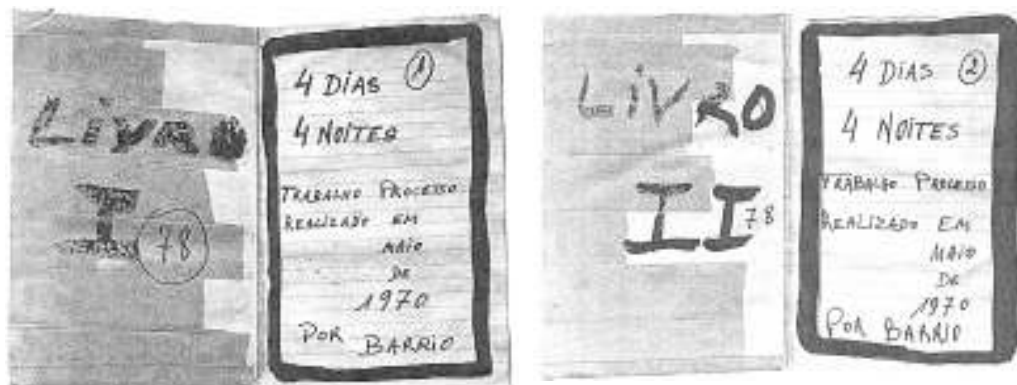 LIVRO
I
78
4 DIAS 1
4 NOITES
TRABALHO PROCESSO
REALIZADO EM
MAIO
DE
1970
POR BARRIO
LIVRO
II
78
4 DIAS 2
4 NOITES
TRABALHO PROCESSO
REALIZADO EM
MAIO
DE
1970
POR BARRIO